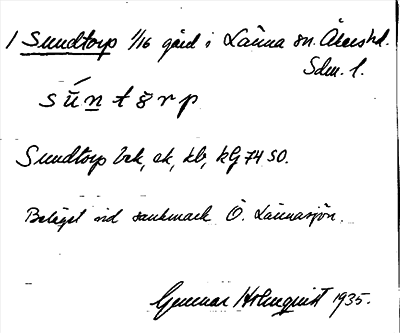 1 Sundtorp 1/16 gård i Länna sn. Åkers hd.
Sdm. l.
s ú̄ n t ŏ r p
Sundtorp brk, ek, kb, kG 74 SO.
Beläget vid sankmark Ö. Lännasjön.
Gunnar Holmquist 1935.